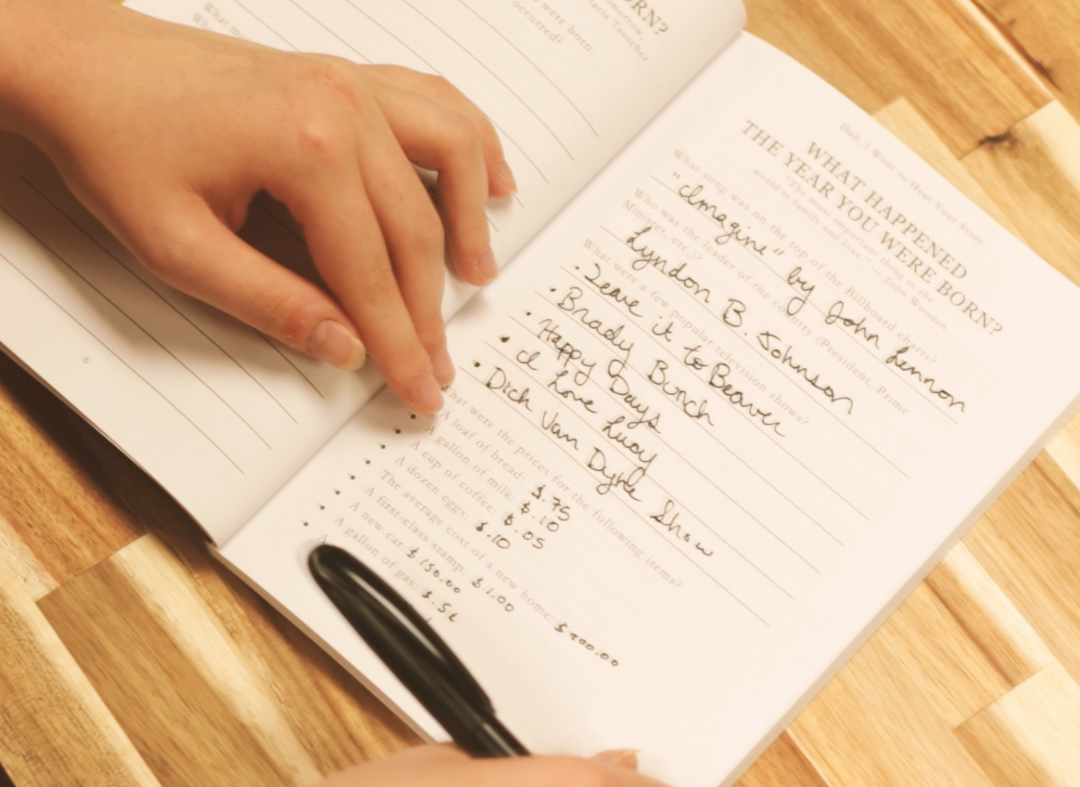 ORN?
omorrow,
were born:
occurred?
What
6
Dad, I Want to Hear Your Story
WHAT HAPPENED
THE YEAR YOU WERE BORN?
"The most important thing in the
world is family and love." — John Wooden
What song was on the top of the Billboard charts?
"Imagine" by John Lennon
Who was the leader of the country (President, Prime
Minister, etc.)?
Lyndon B. Johnson
What were a few popular television shows?
• Leave it to Beaver
• Brady Bunch
• Happy Days
• I Love Lucy
• Dick Van Dyke Show
What were the prices for the following items?
• A loaf of bread: $.75
• A gallon of milk: $.10
• A cup of coffee: $.05
• A dozen eggs: $.10
• The average cost of a new home: $700.00
• A first-class stamp: $1.00
• A new car: $150.00
• A gallon of gas: